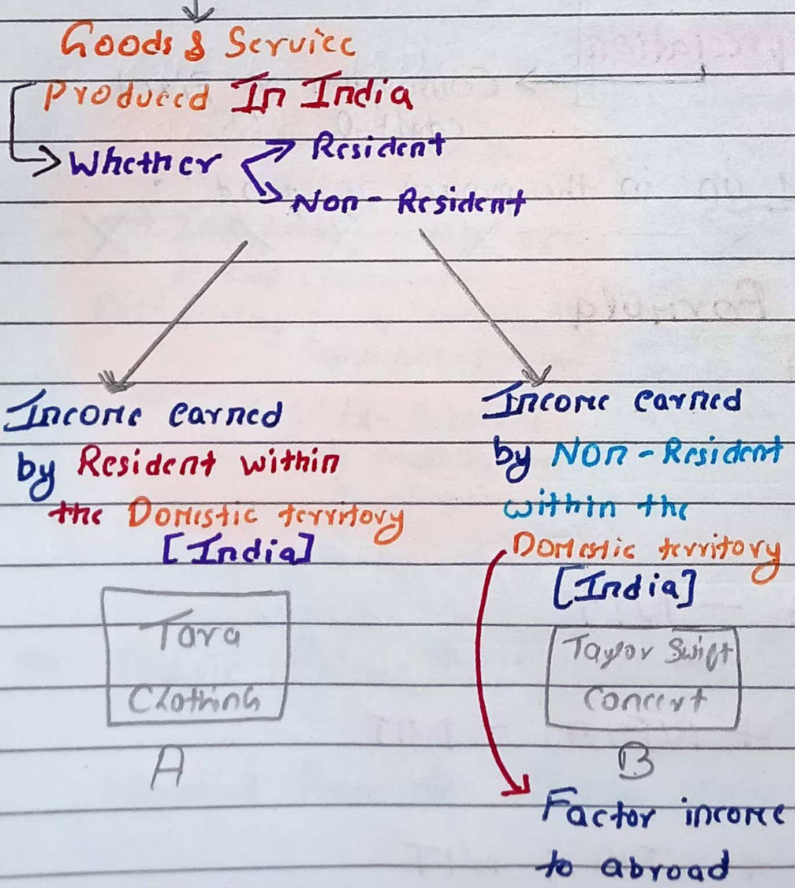 Goods & Service
Produced In India
Whether Resident
Non - Resident
Income earned
by Resident within
the Domestic territory
[India]
Tara
Clothing
A
Income earned
by Non - Resident
within the
Domestic territory
[India]
Taylor Swift
Concert
B
Factor income
to abroad